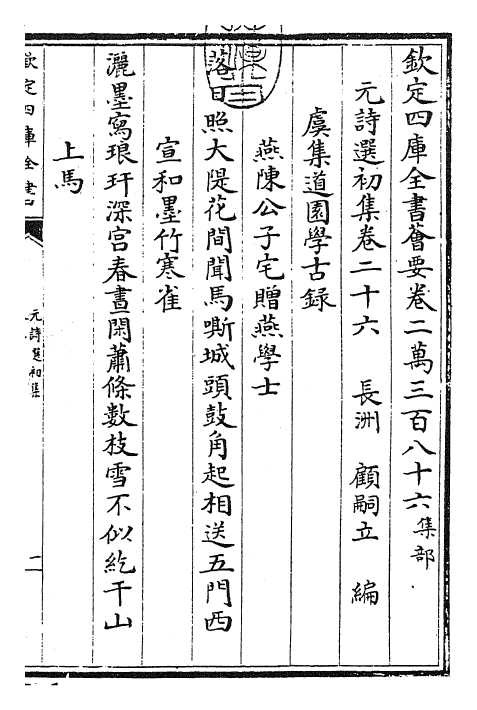 欽定四庫全書薈要卷二萬三百八十六集部
元詩選初集卷二十六 長洲 顧嗣立 編
虞集道園學古録
燕陳公子宅贈燕學士
落日照大隄花間聞馬嘶城頭鼓角起相送五門西
宣和墨竹寒雀
灑墨寫琅玕深宫春晝閑蕭條數枝雪不似紇干山
上馬
欽定四庫全書
元詩選初集